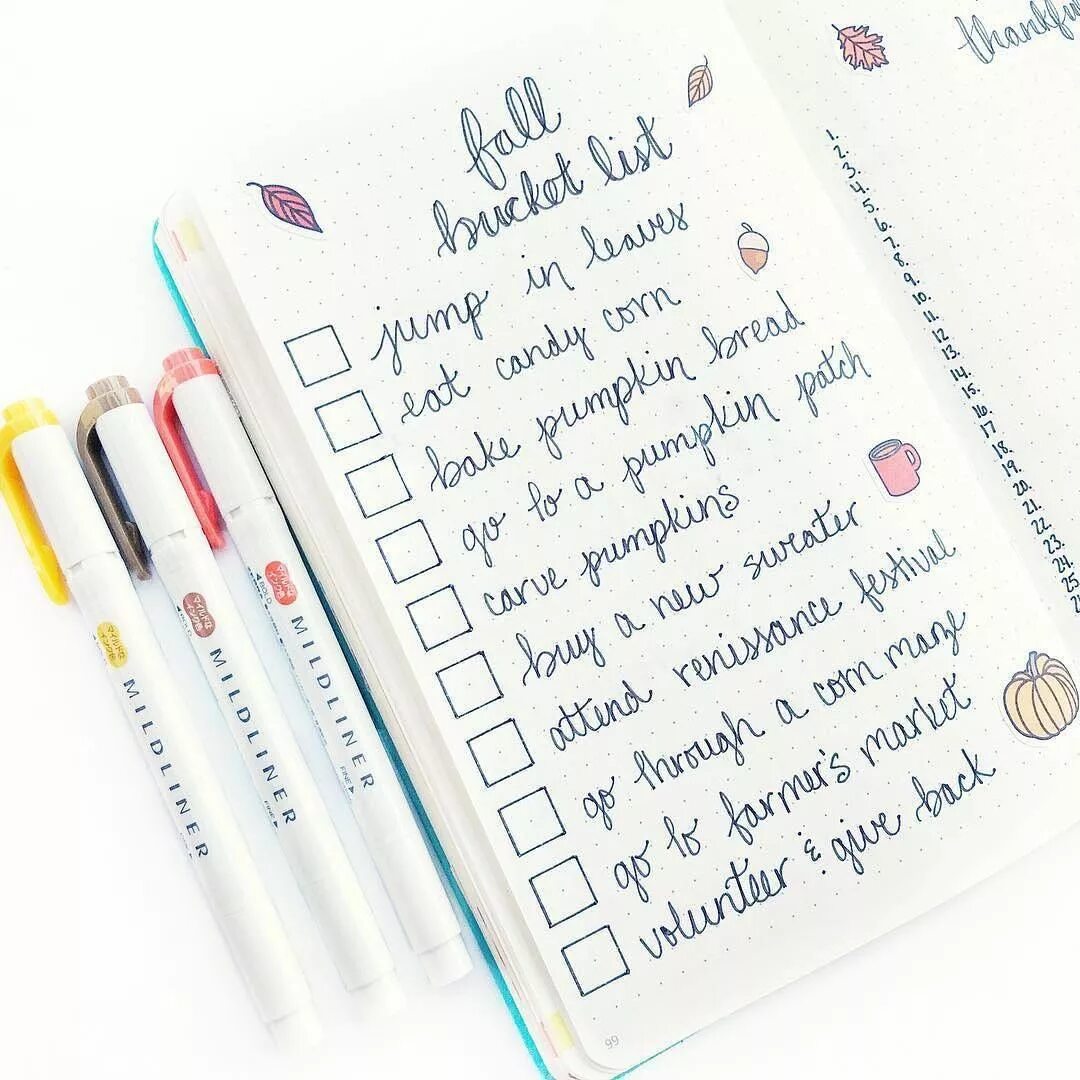 fall
bucket list
jump in leaves
eat candy corn
bake pumpkin bread
go to a pumpkin patch
carve pumpkins
buy a new sweater
attend renissance festival
go through a corn maze
go to farmer's market
volunteer & give back
99
1.
2.
3.
4.
5.
6.
7.
8.
9.
10.
11.
12
13.
14.
15.
16.
17
18.
19.
20.
21.
22
23.
24.
25
MILDLINER
MILDLINER
FINE
MILDLINER
FINE
BOLD
マイルドな
インク色
マイルドな
インク色
マイルドな
インク色